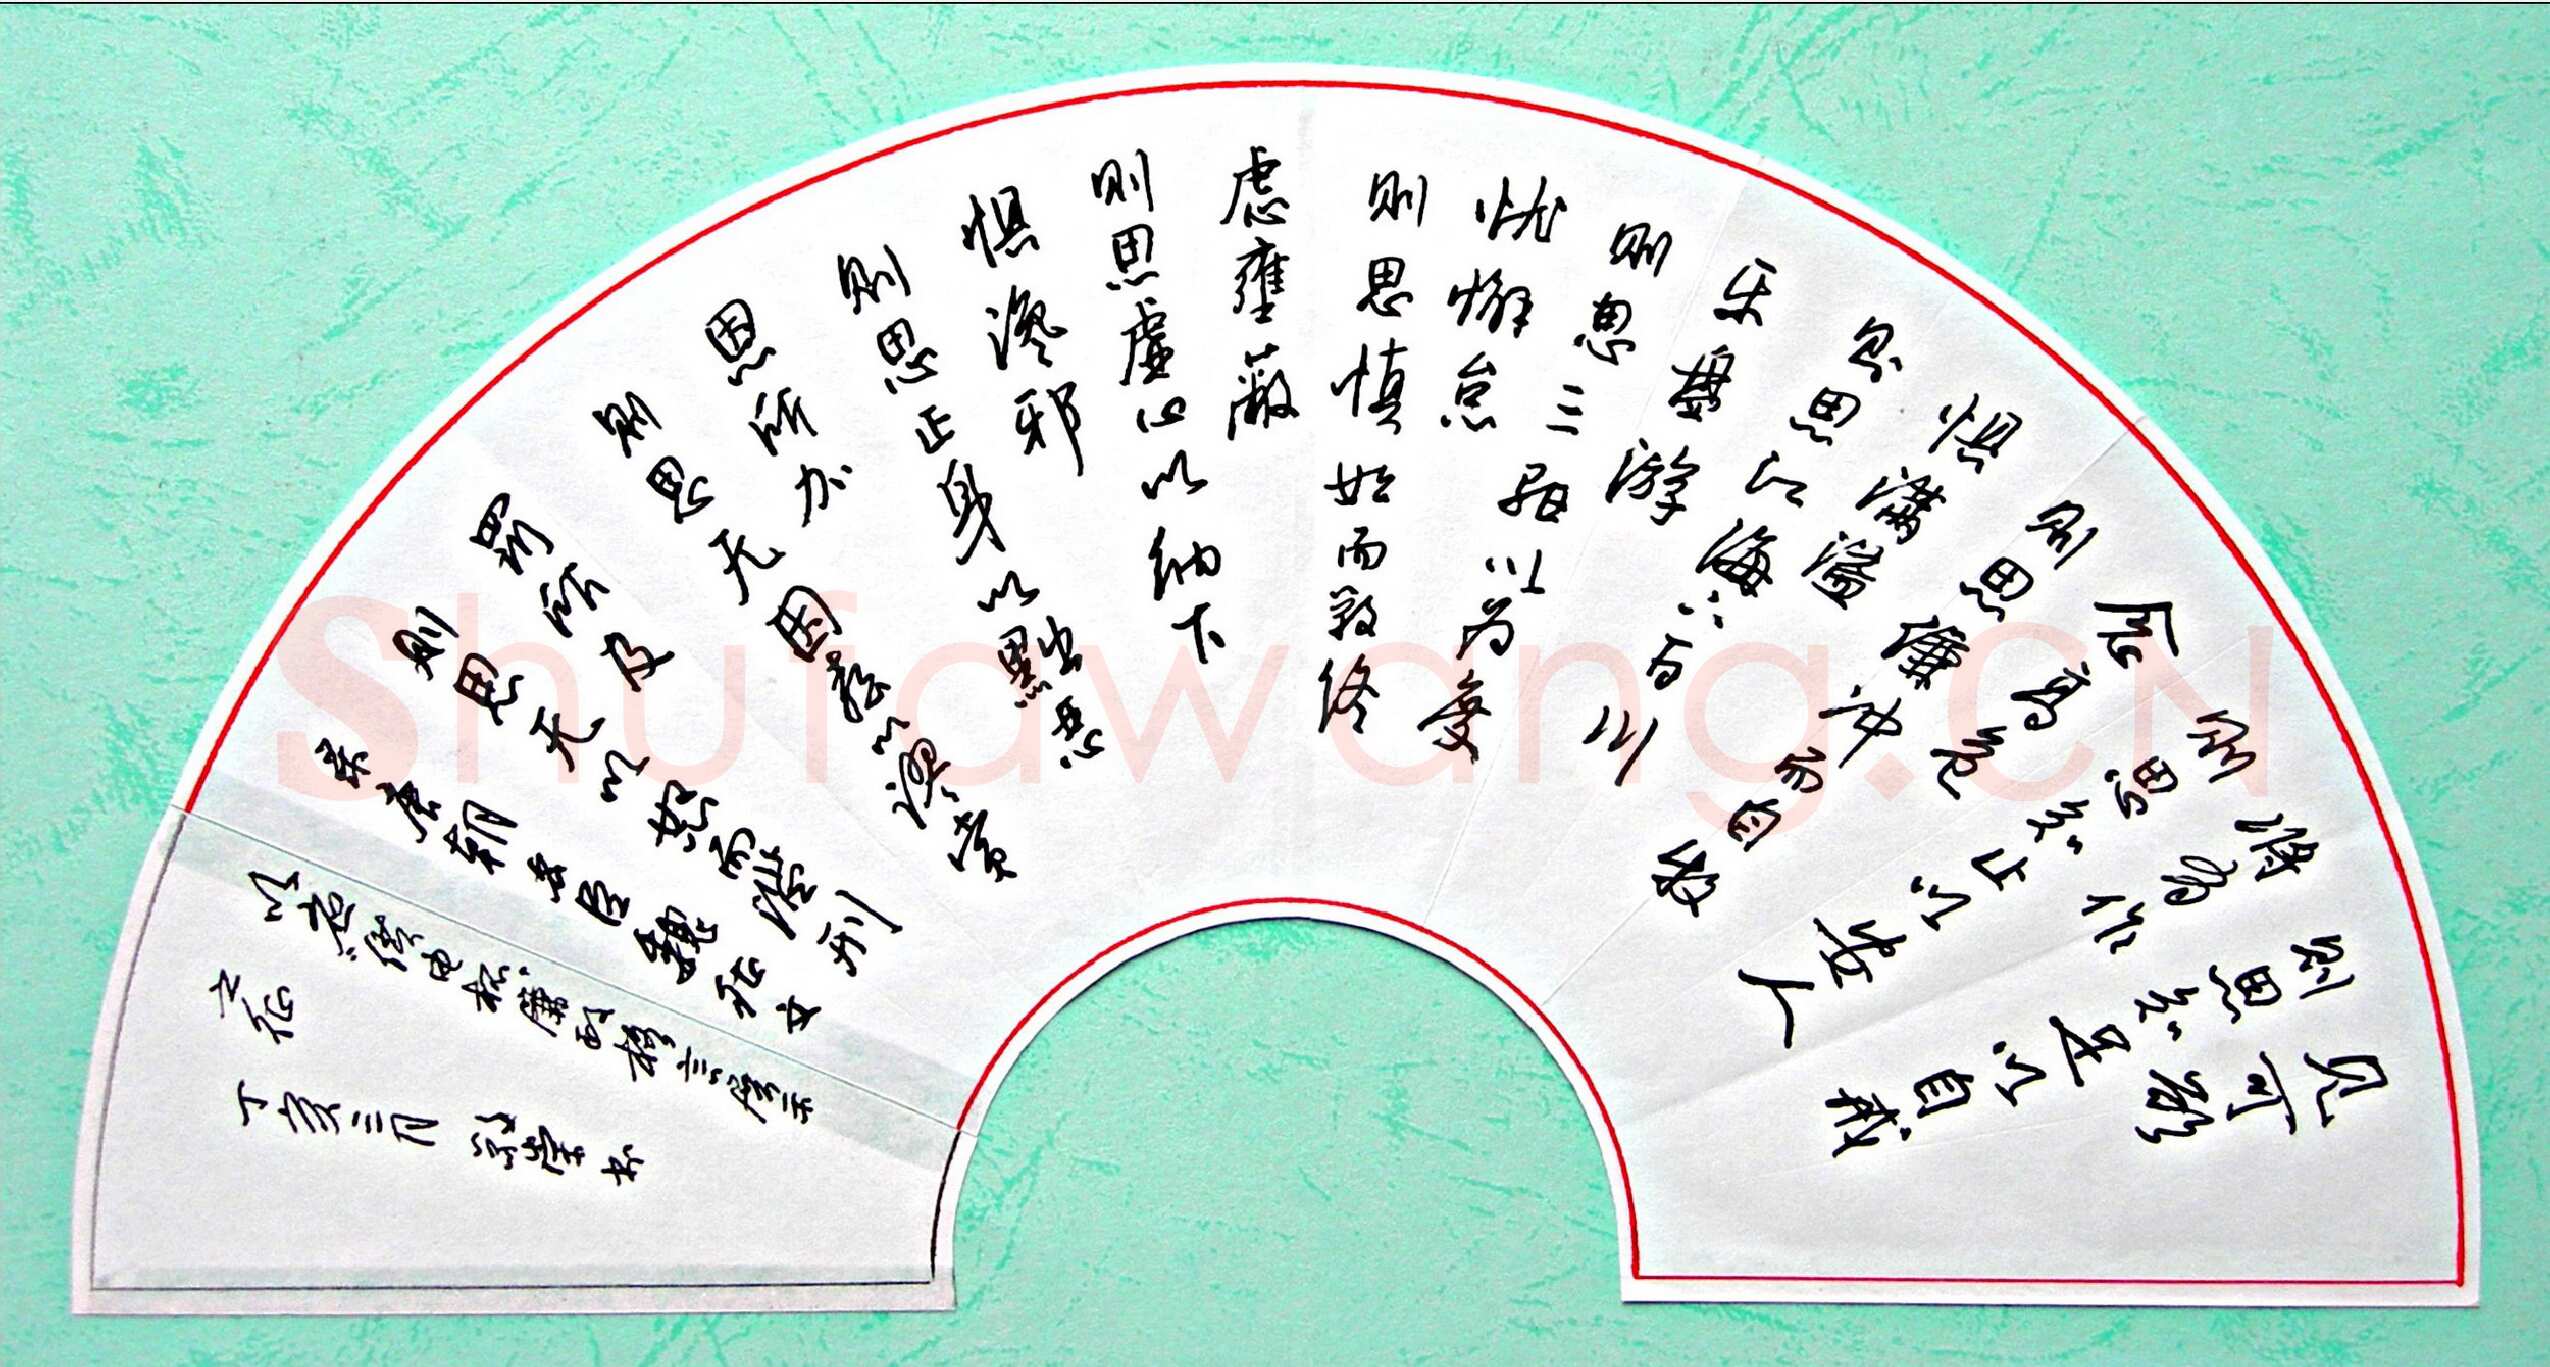 见可欲
则思知足以自戒
将有作
则思知止以安人
念高危
则思谦冲而自牧
惧满溢
则思江海下百川
乐盘游
则思三驱以为度
忧懈怠
则思慎始而敬终
虑壅蔽
则思虚心以纳下
惧谗邪
则思正身以黜恶
恩所加
则思无因喜以谬赏
罚所及
则思无以怒而滥刑
唐朝臣魏征文
以
丁亥三月 书
Shufawang.CN